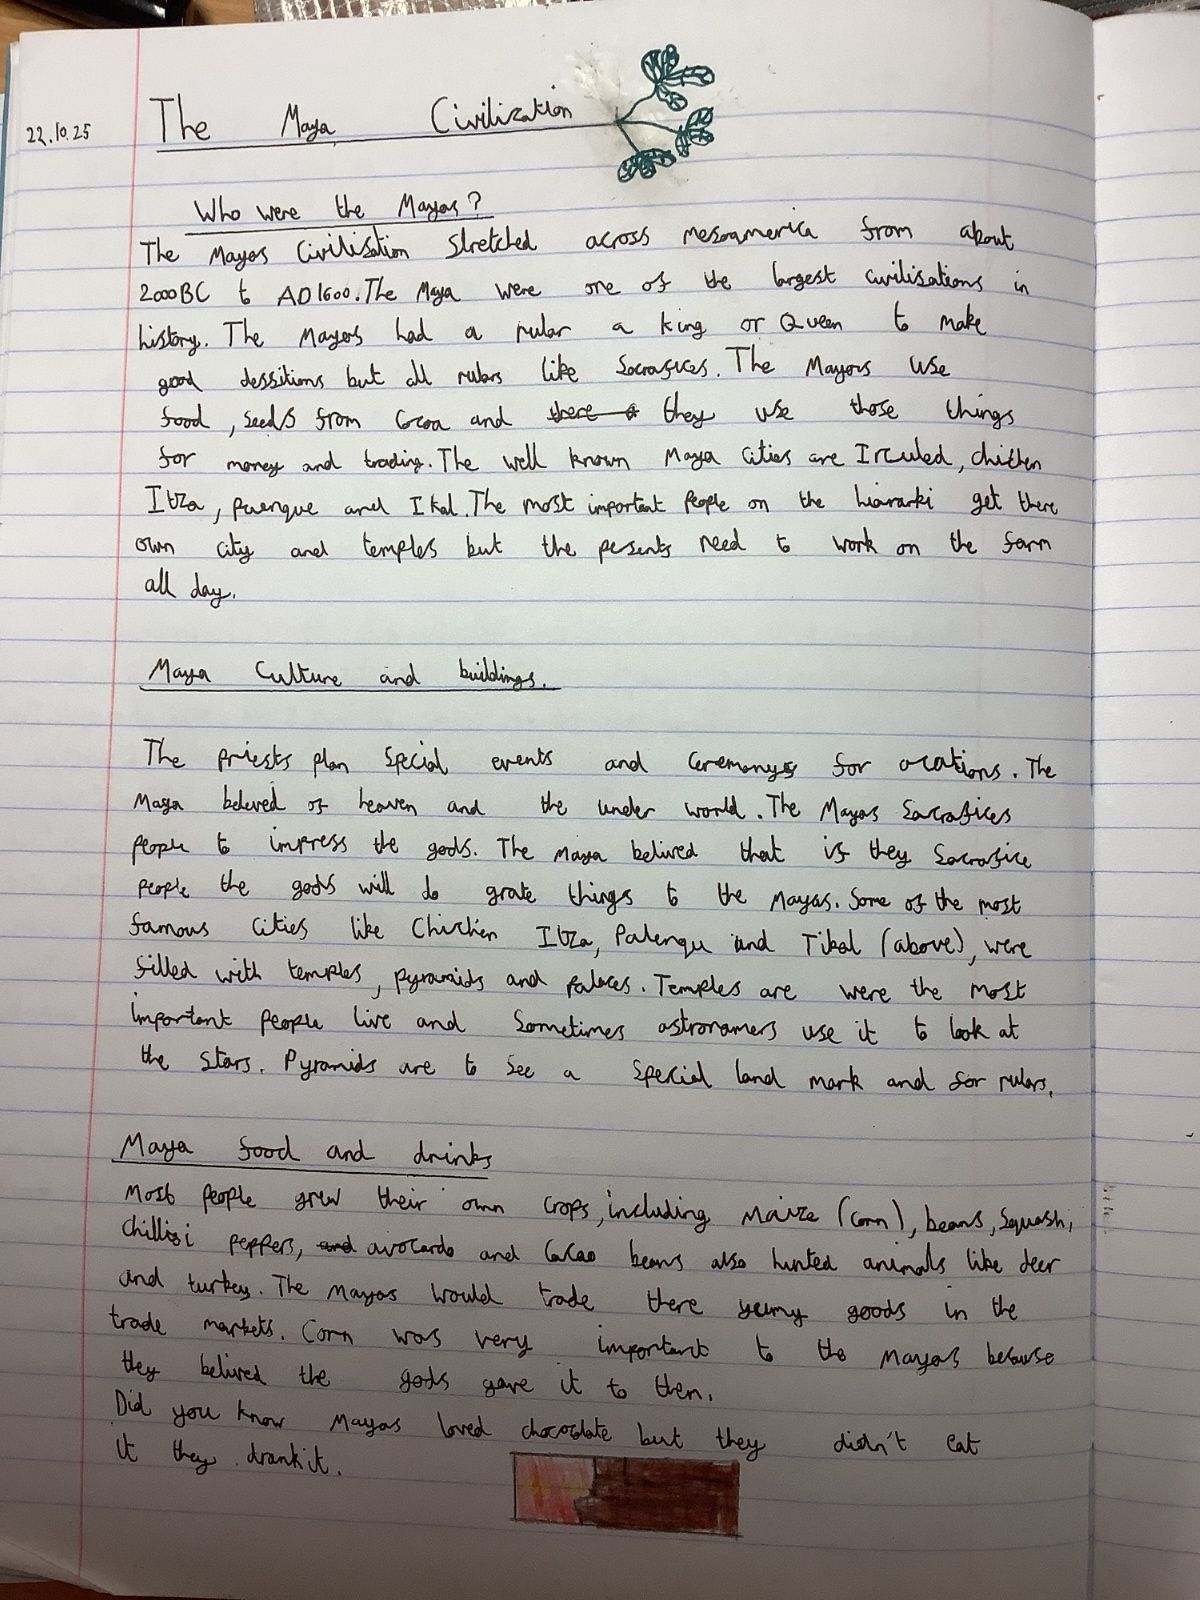 22.10.25
The Maya Civilization
Who were the Mayas?
The Mayas Civilisation stretched across mesoamerica from about
2000BC to AD1600. The Maya were one of the largest civilisations in
history. The Mayas had a rular a king or Queen to make
good dessitions but all rulars like Socrafices. The Mayas use
food, seeds from Cocoa and there a they use those things
for money and trading. The well known Maya cities are Irculed, chitten
Itza, paenque and Ikal. The most important people on the hiararki get there
own city and temples but the pesents need to work on the farm
all day.
Maya Culture and buildings.
The priests plan special events and ceremonys for ocations. The
Maya belived of heaven and the under world. The Mayas Sacrafices
people to impress the gods. The Maya belived that if they Socrafice
people the gods will do grate things to the Mayas. Some of the most
famous cities like Chichen Itza, Palenqu and Tikal (above), were
filled with temples, pyramids and palaces. Temples are were the most
important people live and sometimes astronamers use it to look at
the stars. Pyramids are to see a special land mark and for rulars.
Maya food and drinks
Most people grew their own crops, including Maize (corn), beans, Squash,
chilli peppers, and avocardo and Cacao beans also hunted animals like deer
and turkey. The Mayas would trade there yumy goods in the
trade markets. Corn was very important to the Mayas becauso
they belived the gods gave it to them.
Did you know Mayas loved chocolate but they didn't eat
it they drank it.